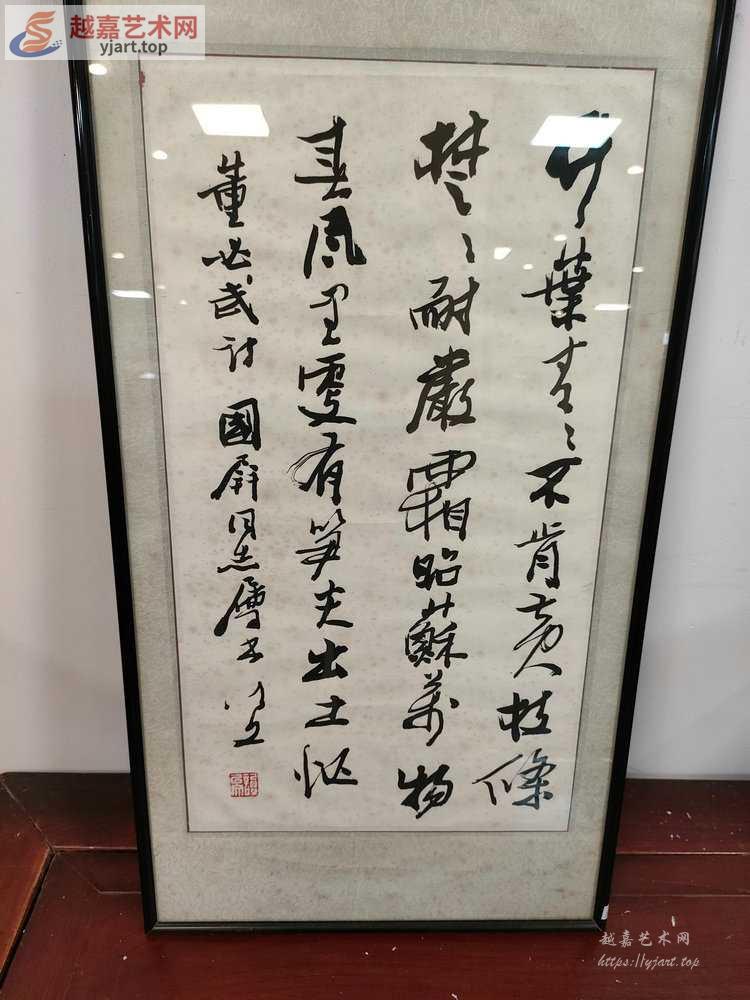 越嘉艺术网
yjart.top
竹葉青〻不肯黄枝條
楚〻耐嚴霜昭蘇萬物
春風里更有笋尖出土忙
董必武詩 國屏同志屬書
越嘉艺术网
https://yjart.top